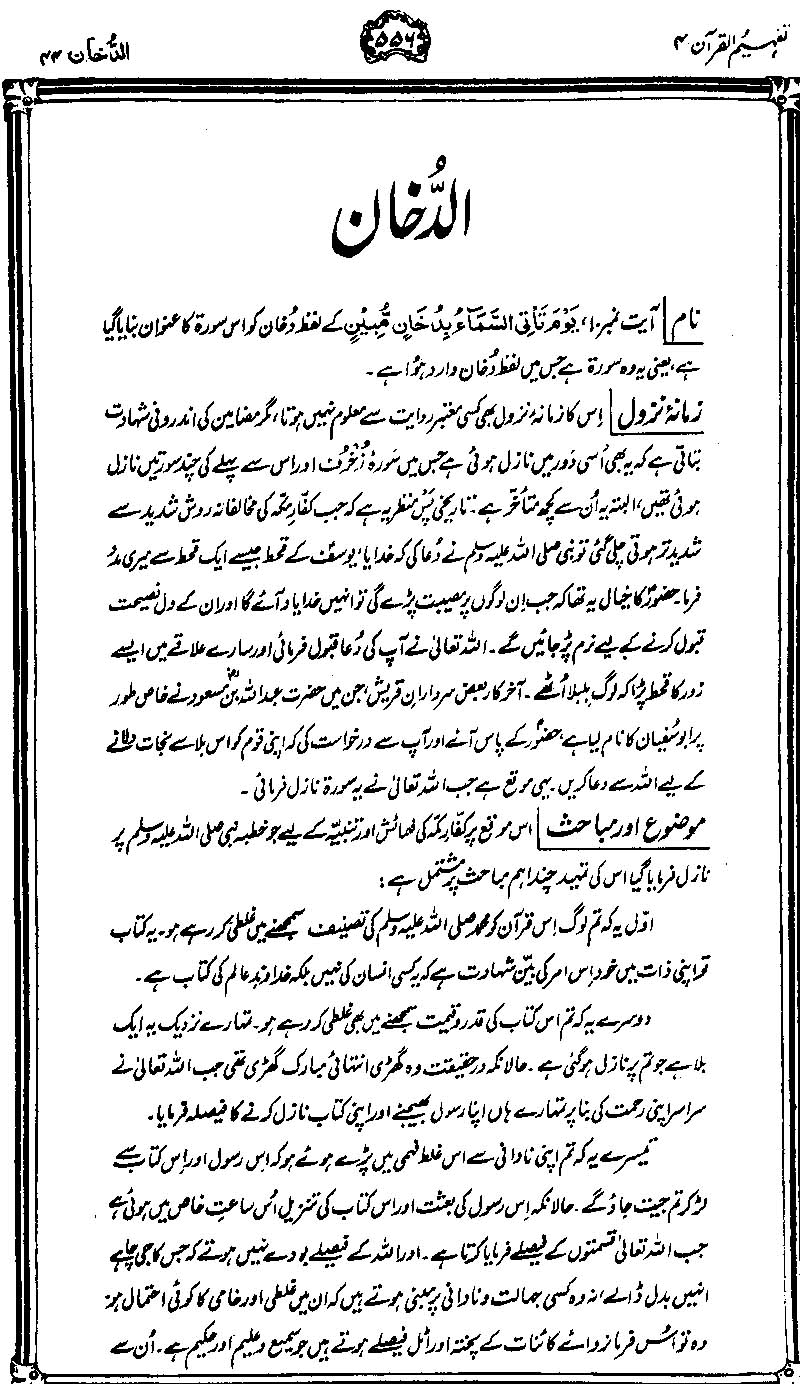 تفہیم القرآن ۴
۵۵۶
الدُّخان ۴۴
الدُّخان
نام آیت نمبر ۱۰، یَوْمَ تَأْتِی السَّمَآءُ بِدُخَانٍ مُّبِیْنٍ کے لفظ دُخان کو اس سورۃ کا عنوان بنایا گیا
ہے، یعنی یہ وہ سورۃ ہے جس میں لفظ دُخان وارد ہُوا ہے۔
زمانۂ نزول اِس کا زمانۂ نزول بھی کسی معتبر روایت سے معلوم نہیں ہوتا، مگر مضامین کی اندرونی شہادت
بتاتی ہے کہ یہ بھی اُسی دَور میں نازل ہوئی ہے جس میں سورۂ زُخْرُف اور اس سے پہلے کی چند سورتیں نازل
ہوئی تھیں، البتہ یہ اُن سے کچھ متأخّر ہے۔ تاریخی پس منظر یہ ہے کہ جب کفّارِ مکّہ کی مخالفانہ روش شدید سے
شدید تر ہوتی چلی گئی تو نبی صلی اللہ علیہ وسلم نے دُعا کی کہ خدایا، یوسفؑ کے قحط جیسے ایک قحط سے میری مدد
فرما۔ حضورؐ کا خیال یہ تھا کہ جب اِن لوگوں پر مصیبت پڑے گی تو انہیں خدا یاد آئے گا اور ان کے دل نصیحت
قبول کرنے کے لیے نرم پڑ جائیں گے۔ اللہ تعالیٰ نے آپ کی دُعا قبول فرمائی اور سارے علاقے میں ایسے
زور کا قحط پڑا کہ لوگ بلبلا اُٹھے۔ آخرکار بعض سردارانِ قریش، جن میں حضرت عبداللہ بن مسعودؓ نے خاص طور
پر ابوسُفیان کا نام لیا ہے، حضورؐ کے پاس آئے اور آپ سے درخواست کی کہ اپنی قوم کو اس بلا سے نجات دلانے
کے لیے اللہ سے دعا کریں۔ یہی موقع ہے جب اللہ تعالیٰ نے یہ سورۃ نازل فرمائی۔
موضوع اور مباحث اس موقع پر کفّارِ مکّہ کی فہمائش اور تنبیہ کے لیے جو خطبہ نبی صلی اللہ علیہ وسلم پر
نازل فرمایا گیا اس کی تمہید چند اہم مباحث پر مشتمل ہے:
اوّل یہ کہ تم لوگ اِس قرآن کو محمد صلی اللہ علیہ وسلم کی تصنیف سمجھنے میں غلطی کر رہے ہو۔ یہ کتاب
تو اپنی ذات میں خود اِس امر کی بیّن شہادت ہے کہ یہ کسی انسان کی نہیں بلکہ خداوندِ عالم کی کتاب ہے۔
دوسرے یہ کہ تم اس کتاب کی قدر و قیمت سمجھنے میں بھی غلطی کر رہے ہو۔ تمہارے نزدیک یہ ایک
بلا ہے جو تم پر نازل ہو گئی ہے۔ حالانکہ درحقیقت وہ گھڑی انتہائی مبارک گھڑی تھی جب اللہ تعالیٰ نے
سراسر اپنی رحمت کی بنا پر تمہارے ہاں اپنا رسول بھیجنے اور اپنی کتاب نازل کرنے کا فیصلہ فرمایا۔
تیسرے یہ کہ تم اپنی نادانی سے اس غلط فہمی میں پڑے ہوئے ہو کہ اِس رسول اور اِس کتاب سے
لڑ کر تم جیت جاؤ گے۔ حالانکہ اِس رسول کی بعثت اور اس کتاب کی تنزیل اُس ساعتِ خاص میں ہوئی ہے
جب اللہ تعالیٰ قسمتوں کے فیصلے فرمایا کرتا ہے۔ اور اللہ کے فیصلے بودے نہیں ہوتے کہ جس کا جی چاہے
انہیں بدل ڈالے، نہ وہ کسی جہالت و نادانی پر مبنی ہوتے ہیں کہ ان میں غلطی اور خامی کا کوئی احتمال ہو۔
وہ تو اُس فرمانروائے کائنات کے پختہ اور اٹل فیصلے ہوتے ہیں جو سمیع و علیم اور حکیم ہے۔ اُن سے